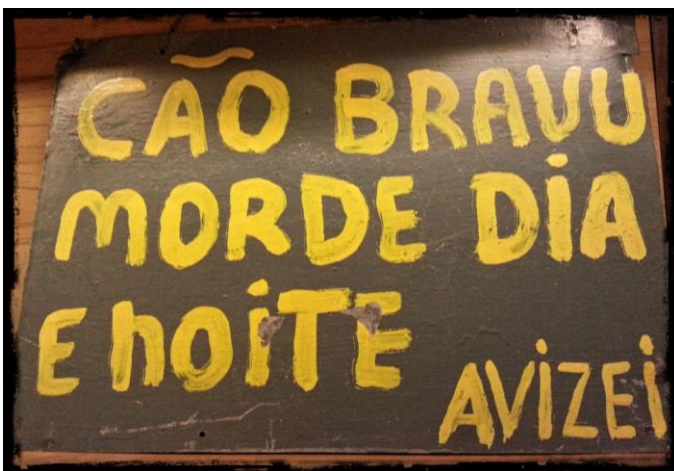 CÃO BRAVU
MORDE DIA
E nOiTE
AViZEi